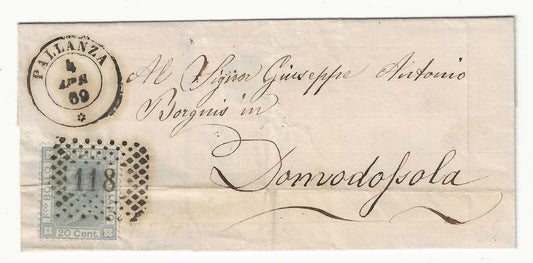 PALLANZA
4
APR
69
Al Signor Giuseppe Antonio
Borgnis in
Domodossola
118
FCO BOLLO
20 Cent.